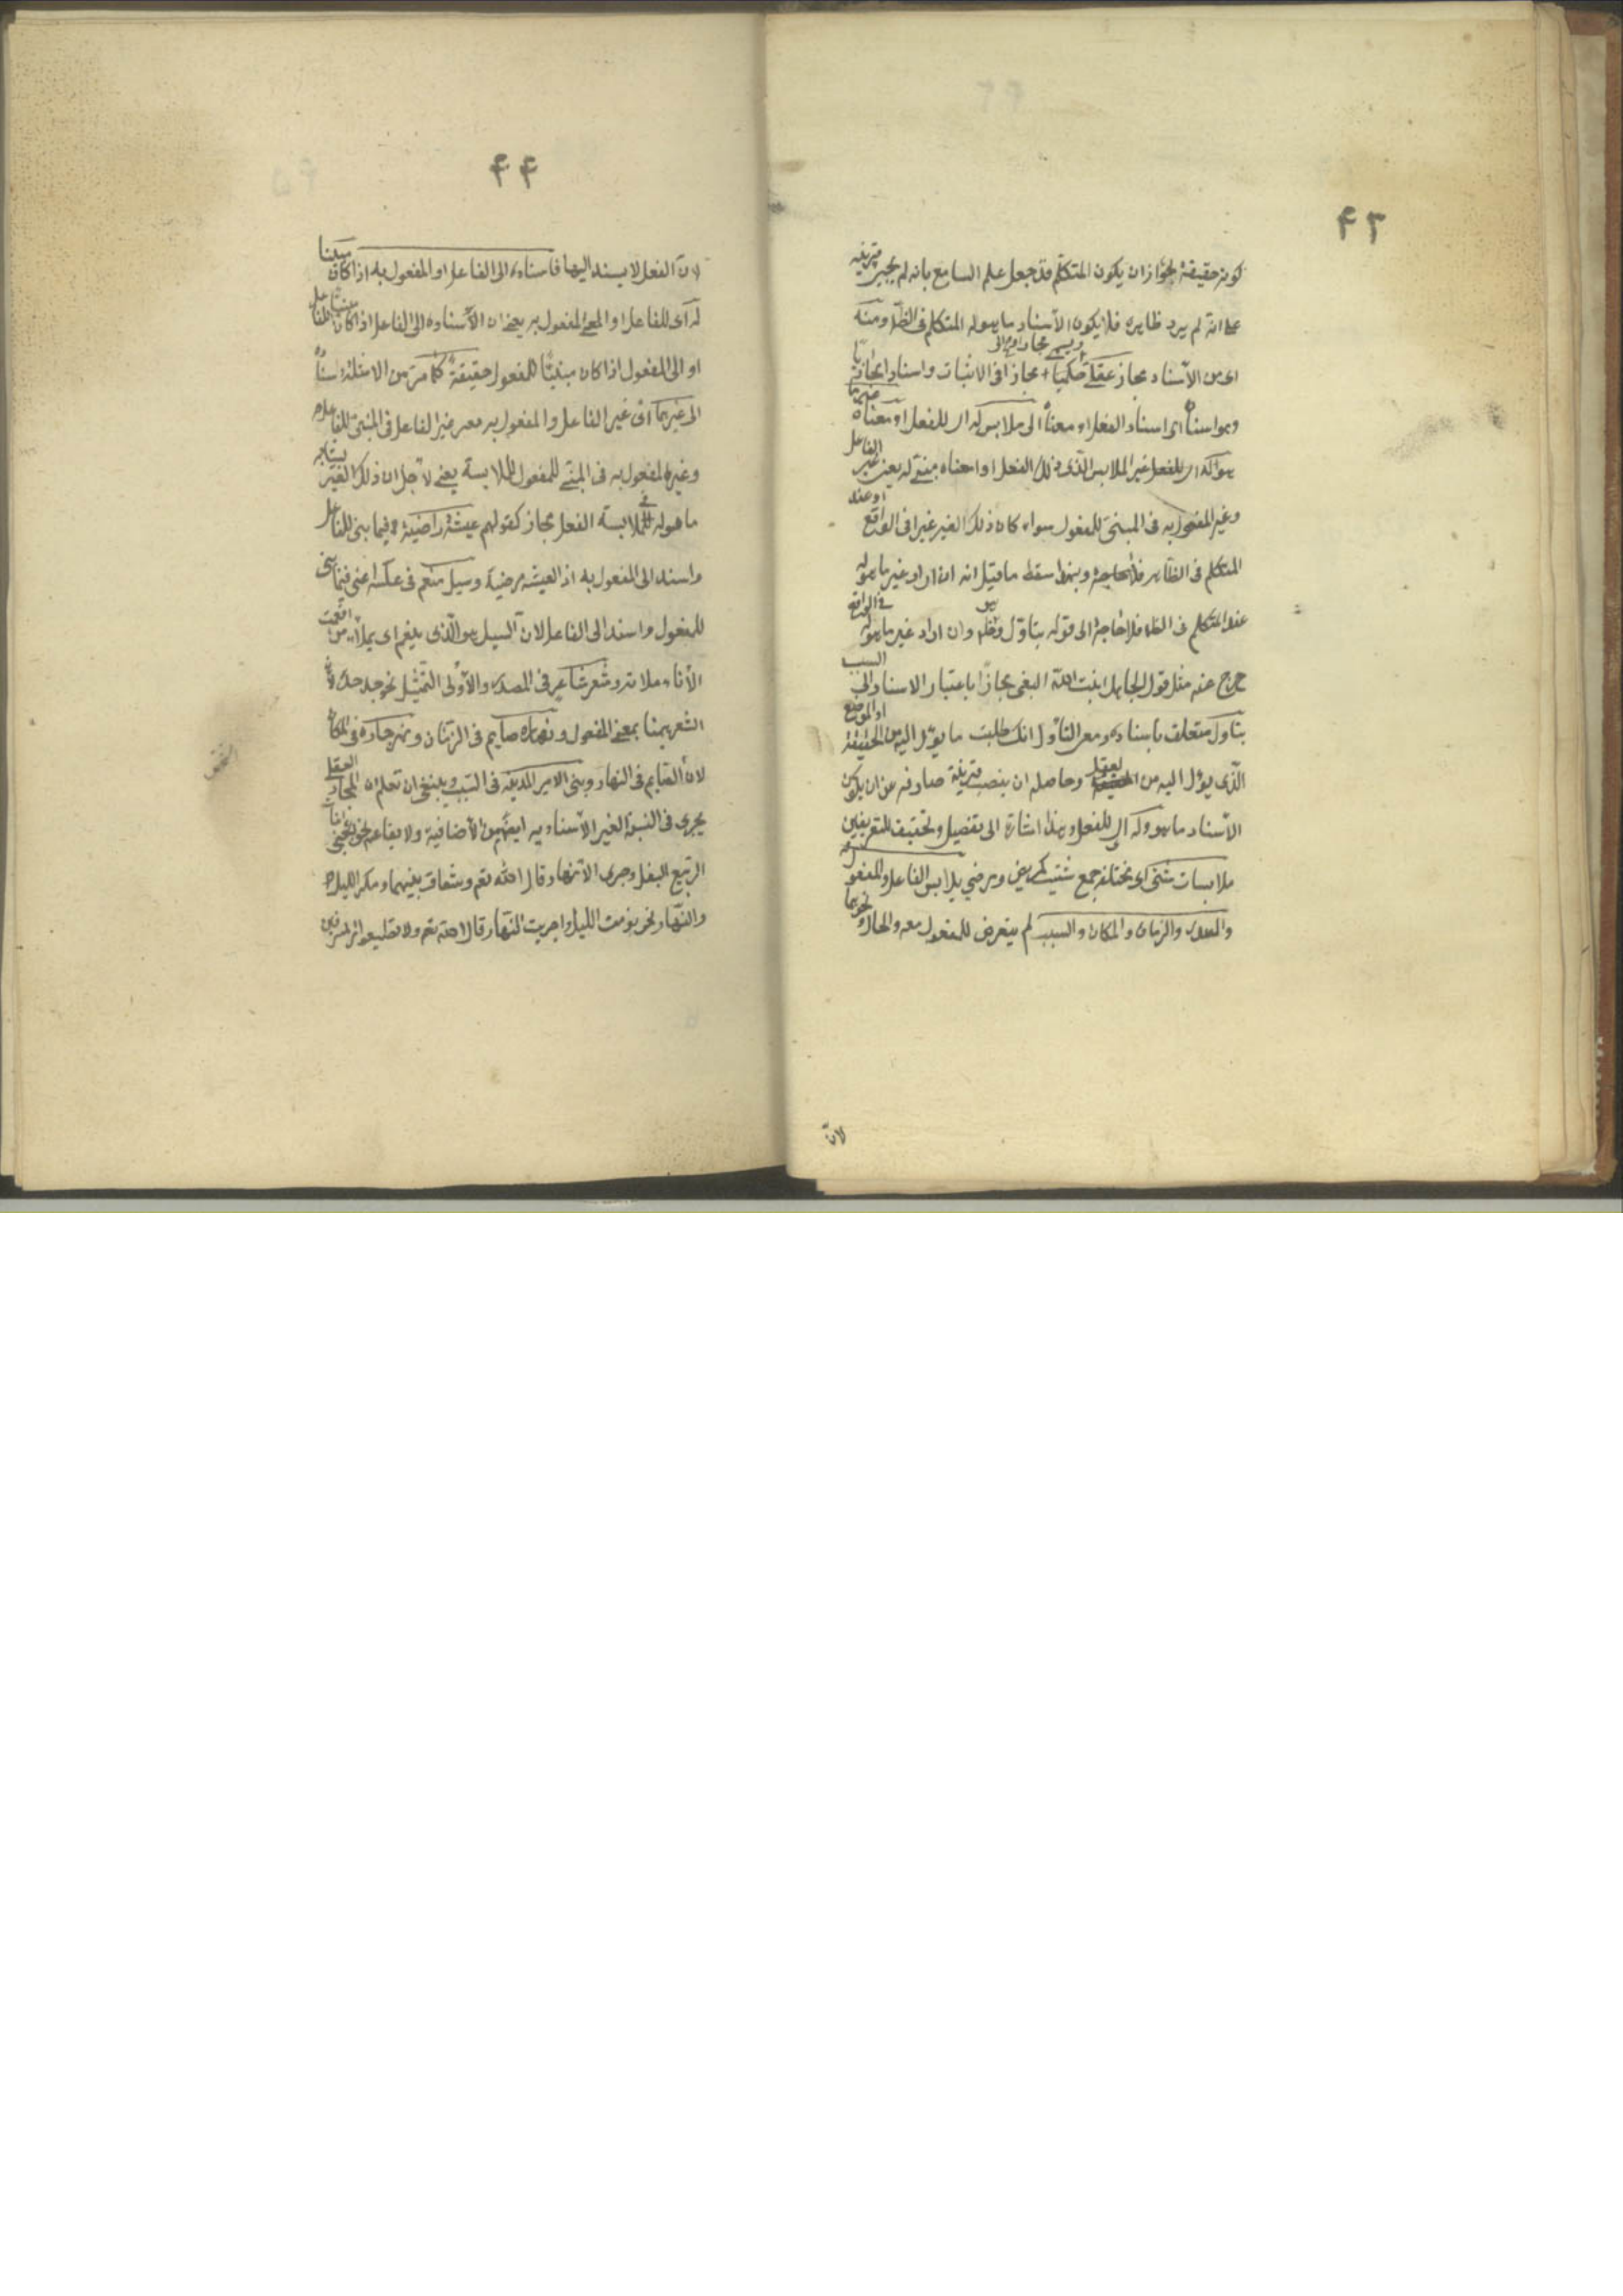 ۴۳
كونه حقيقة لجواز ان يكون المتكلم قد جعل علم السامع بانه لم يجئ قرينة
على انه لم يرد ظاهره فلا يكون الاسناد ما هو له المتكلم فى الظ ومنه
اى من الاسناد مجاز عقلى ويسمى مجازا حكميا ومجازا فى الاثبات واسنادا مجازيا
وهو اسناده اى اسناد الفعل او معناه الى ملابس له اى للفعل او معناه غير ما
هو له اى للفعل غير الملابس الذى ذلك الفعل او معناه مبنى له يعنى غير الفاعل
وغير المفعول به فى المبنى للمفعول سواء كان ذلك الغير غيرا فى الواقع او عند
المتكلم فى الظاهر فلا حاجة وبهذا سقط ما قيل انه ان اراد غير ما هو له
عند المتكلم فى الظ فلا حاجة الى قوله بتأول وهو ظ وان اراد غير ما هو له فى الواقع
خرج عنه مثل قول الجاهل انبت الله البقل مجازا باعتبار الاسناد الى السبب
بتأول متعلق باسناده ومعنى التأول انك طلبت ما يؤل اليه من الحقيقة او الموضع
الذى يؤل اليه من العقل وحاصله ان ينصب قرينة صارفه عن ان يكون
الاسناد ما هو له وله اى للفعل وهذا اشارة الى تفصيل وتحقيق للتعريفين
ملابسات شتى اى مختلفة جمع شتيت كمريض ومرضى يلابس الفاعل والمفعول به
والمصدر والزمان والمكان والسبب لم يتعرض للمفعول معه والحال ونحوهما
لان
۴۴
لان الفعل لا يسند اليها فاسناده الى الفاعل او المفعول به اذا كان مبنيا
له اى للفاعل او المفعول به يعنى ان الاسناده الى الفاعل اذا كان مبنيا للفاعل
او الى المفعول اذا كان مبنيا للمفعول حقيقة كما مر من الامثلة واسناده
الى غيرهما اى غير الفاعل والمفعول به يعنى غير الفاعل فى المبنى للفاعل
وغير المفعول به فى المبنى للمفعول للملابسة يعنى لاجل ان ذلك الغير يشابه
ما هو له فى ملابسة الفعل مجاز كقولهم عيشة راضية فيما بنى للفاعل
واسند الى المفعول به اذ العيشة مرضية وسيل مفعم فى عكسه اعنى فيما بنى
للمفعول واسند الى الفاعل لان السيل هو الذى يفعم اى يملأ من افعمت
الاناء ملاءته وشعر شاعر فى المصدر والاولى التمثيل نحو جد جده لان
الشعر هنا بمعنى المفعول ونهاره صائم فى الزمان ونهر جار فى المكان
لان الصايم فى النهار وبنى الامير المدينة فى السبب وينبغى ان تعلم ان المجاز العقلى
يجرى فى النسبة الغير الاسنادية ايضا من الاضافية ولا يقاعية نحو اعجبنى انبات
الربيع البقل وجرى الانهار قال الله تعم وشقاق بينهما ومكر الليل
والنهار ونحو نومت الليل واجريت النهار قال الله تعم ولا تطيعوا امر المسرفين